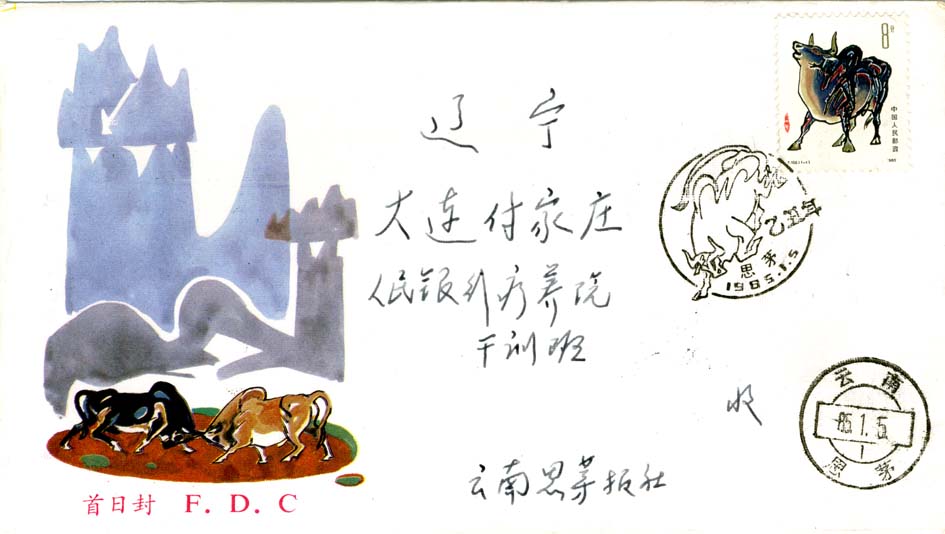 8分
中国人民邮政
辽宁
大连付家庄
人民银行疗养院
干训班
收
云南思茅报社
乙丑年
思茅
1985.1.5
云南
85.1.5
1
思茅
首日封 F. D. C